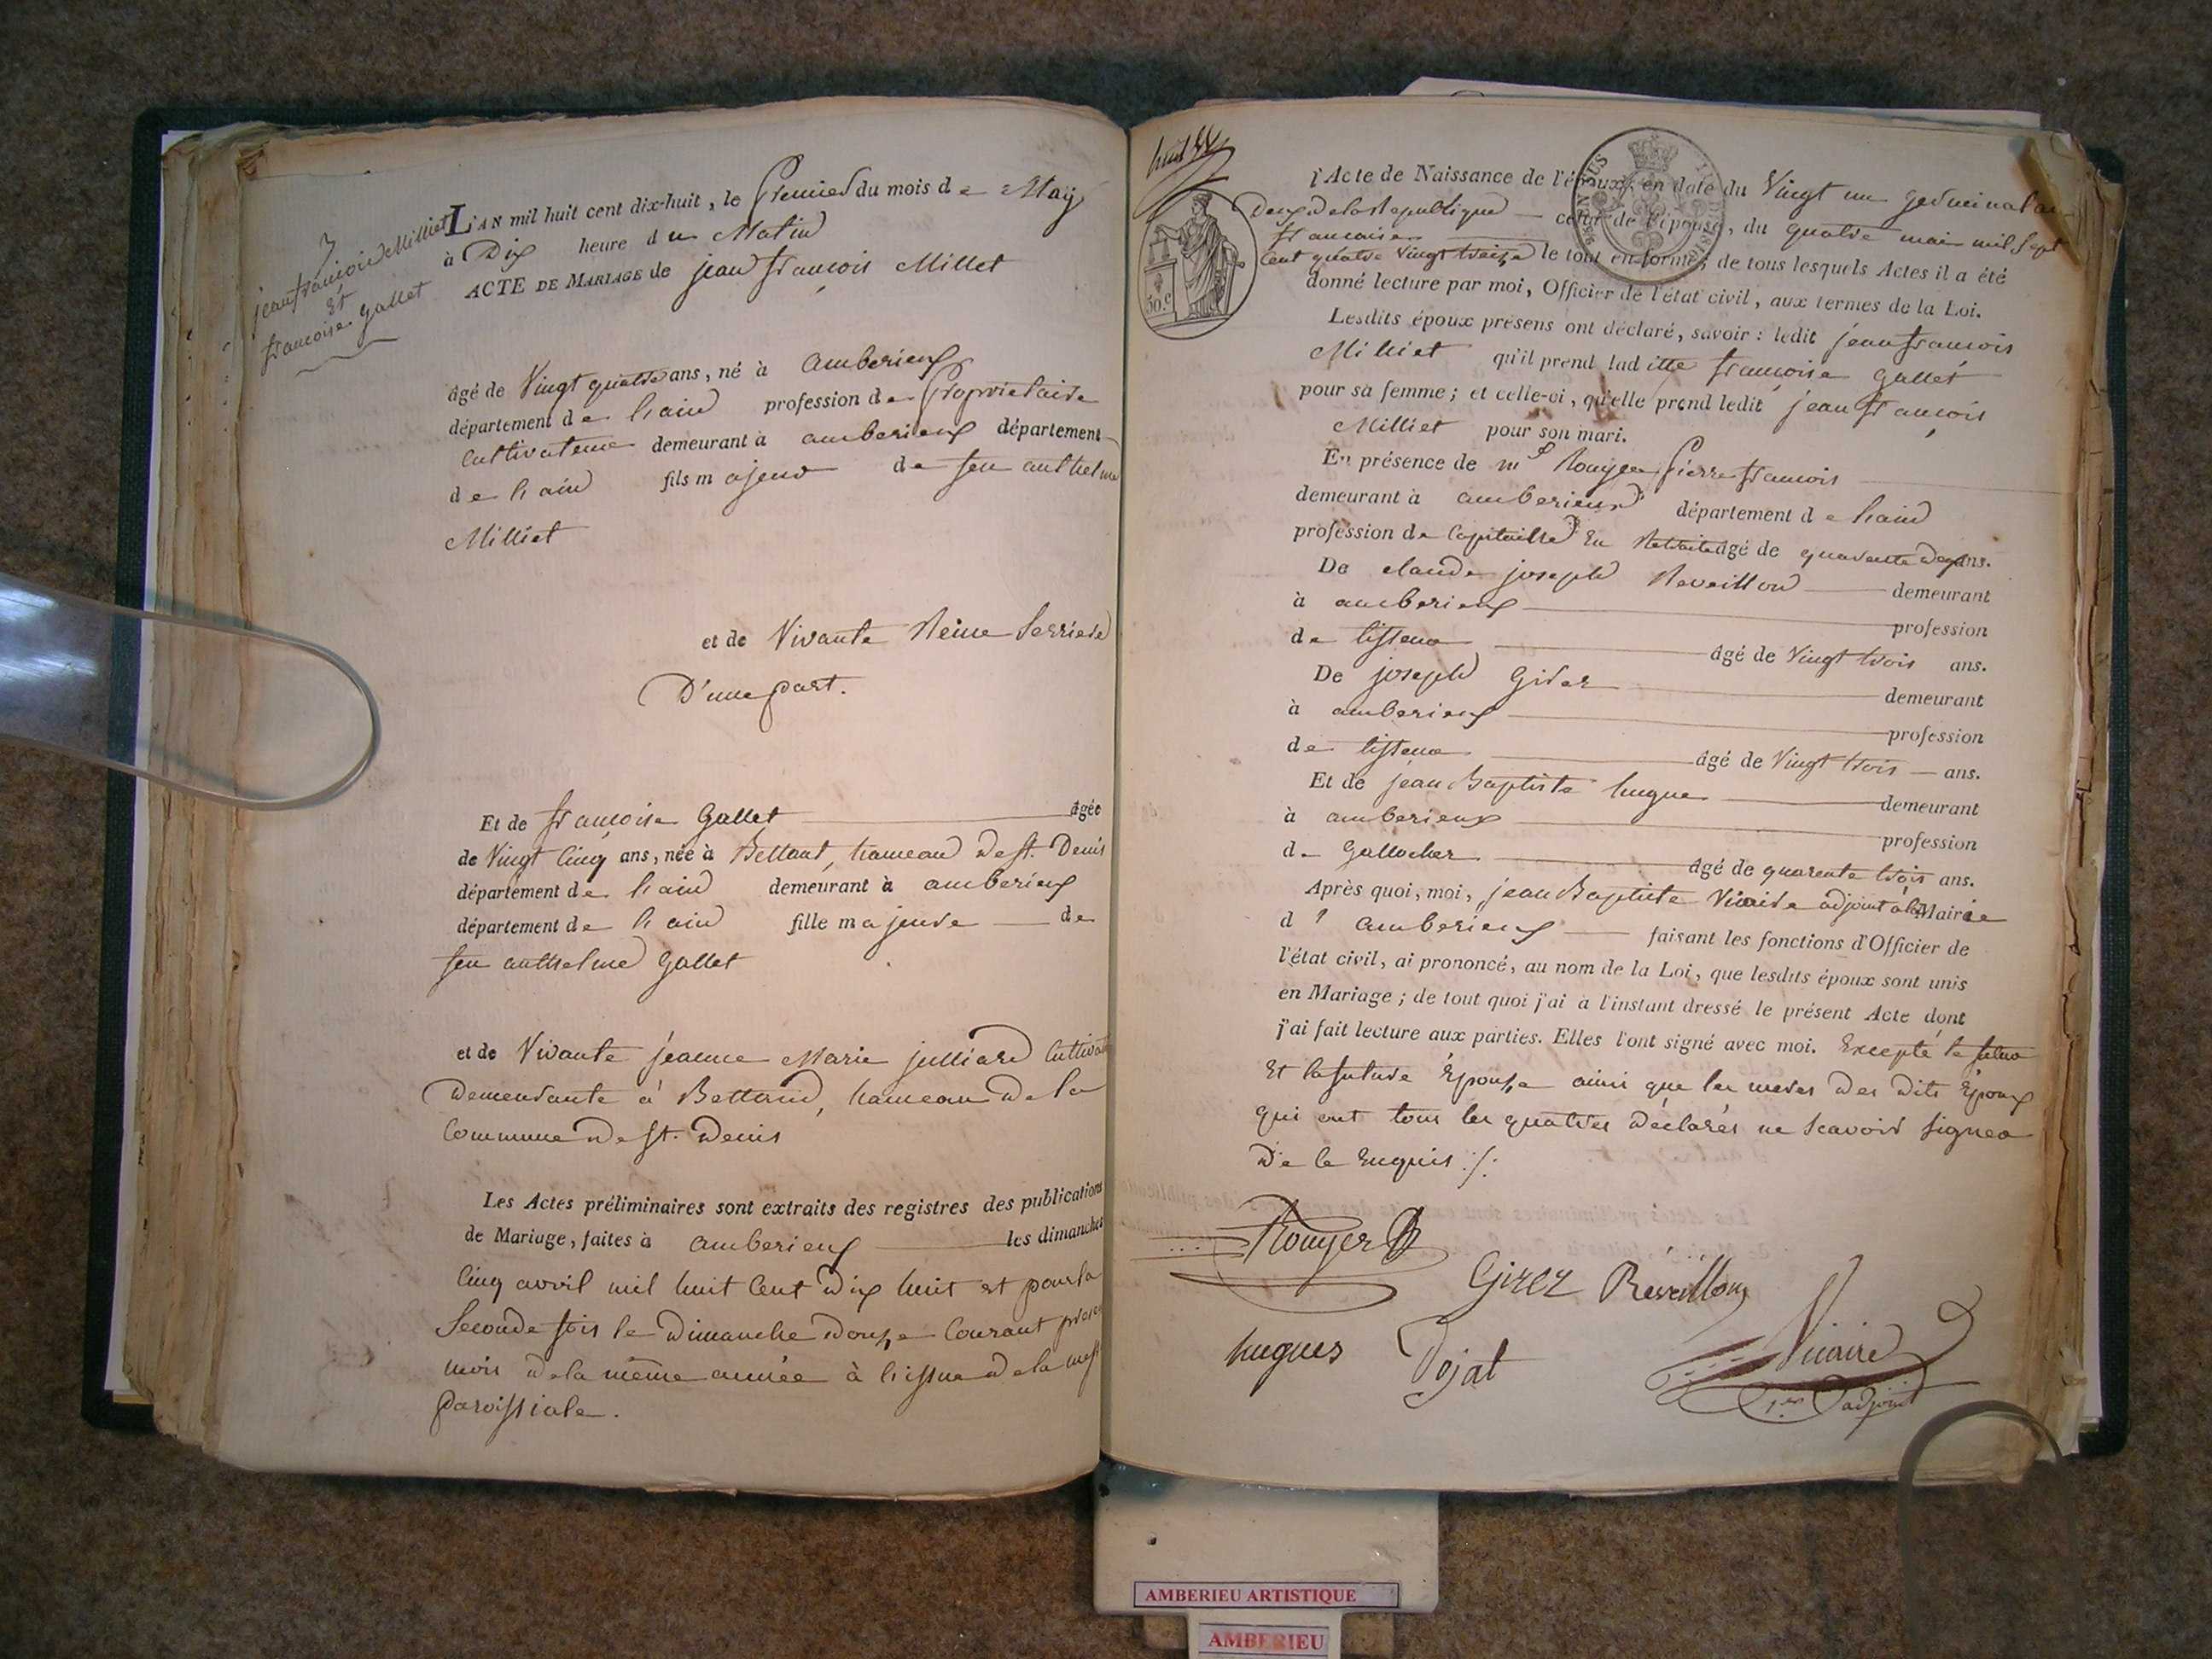 3
jean françois Milliet
Et
françoise gallet
L'AN mil huit cent dix-huit, le Premier du mois de Maÿ
à Dix heure du Matin
ACTE DE MARIAGE de jean françois Millet
âgé de Vingt quatre ans, né à amberieux
département de l'ain profession de Proprietaire
Cultivateur demeurant à amberieux département
de l'ain fils majeur de feu anthelme
Milliet
et de Vivante Reine Serriere
D'une part.
Et de françoise Gallet âgée
de Vingt Cinq ans, née à Bettant, hameau de st. Denis
département de l'ain demeurant à amberieux
département de l'ain fille majeure de
feu anthelme Gallet
et de Vivante jeanne Marie julliard Cultivat
Demeurante à Bettand, hameau de la
Commune de st. Denis
Les Actes préliminaires sont extraits des registres des publications
de Mariage, faites à amberieux les dimanches
Cinq avril mil huit Cent Dix huit et pour la
Seconde fois le Dimanche Douze Courant
mois de la même année à l'issue de la mess
paroissiale.
huit
50.c
l'Acte de Naissance de l'époux, en date du Vingt un germinal an
Deux de la Republique celui de l'épouse, du quatre mai mil Sept
francaise
Cent quatre Vingt treize le tout en forme; de tous lesquels Actes il a été
donné lecture par moi, Officier de l'état civil, aux termes de la Loi.
Lesdits époux présens ont déclaré, savoir: ledit jean françois
Milliet qu'il prend laditte françoise gallet
pour sa femme; et celle-ci, qu'elle prend ledit jean françois
Milliet pour son mari.
En présence de mr Rouyer Pierre francois
demeurant à amberieux département de l'ain
profession de Capitaine En Retraite âgé de quarente Deux ans.
De claude joseph Reveillon demeurant
à amberieux profession
de tisseur âgé de Vingt trois ans.
De joseph Girer demeurant
à amberieux profession
de tisseur âgé de Vingt trois ans.
Et de jean Baptiste hugue demeurant
à amberieux profession
de Gallocher âgé de quarente trois ans.
Après quoi, moi, jean Baptiste Vicaire adjoint à la Mairie
d'amberieux faisant les fonctions d'Officier de
l'état civil, ai prononcé, au nom de la Loi, que lesdits époux sont unis
en Mariage; de tout quoi j'ai à l'instant dressé le présent Acte dont
j'ai fait lecture aux parties. Elles l'ont signé avec moi. Excepté le futur
Et la future Epouse ainsi que les meres des dits Epoux
qui ont tous les quatres déclarés ne scavoir signer
De ce Enquis ./.
Rouyer
Girez Réveillon
hugues Dojat Vicaire
1er adjoint
AMBERIEU ARTISTIQUE
AMBERIEU